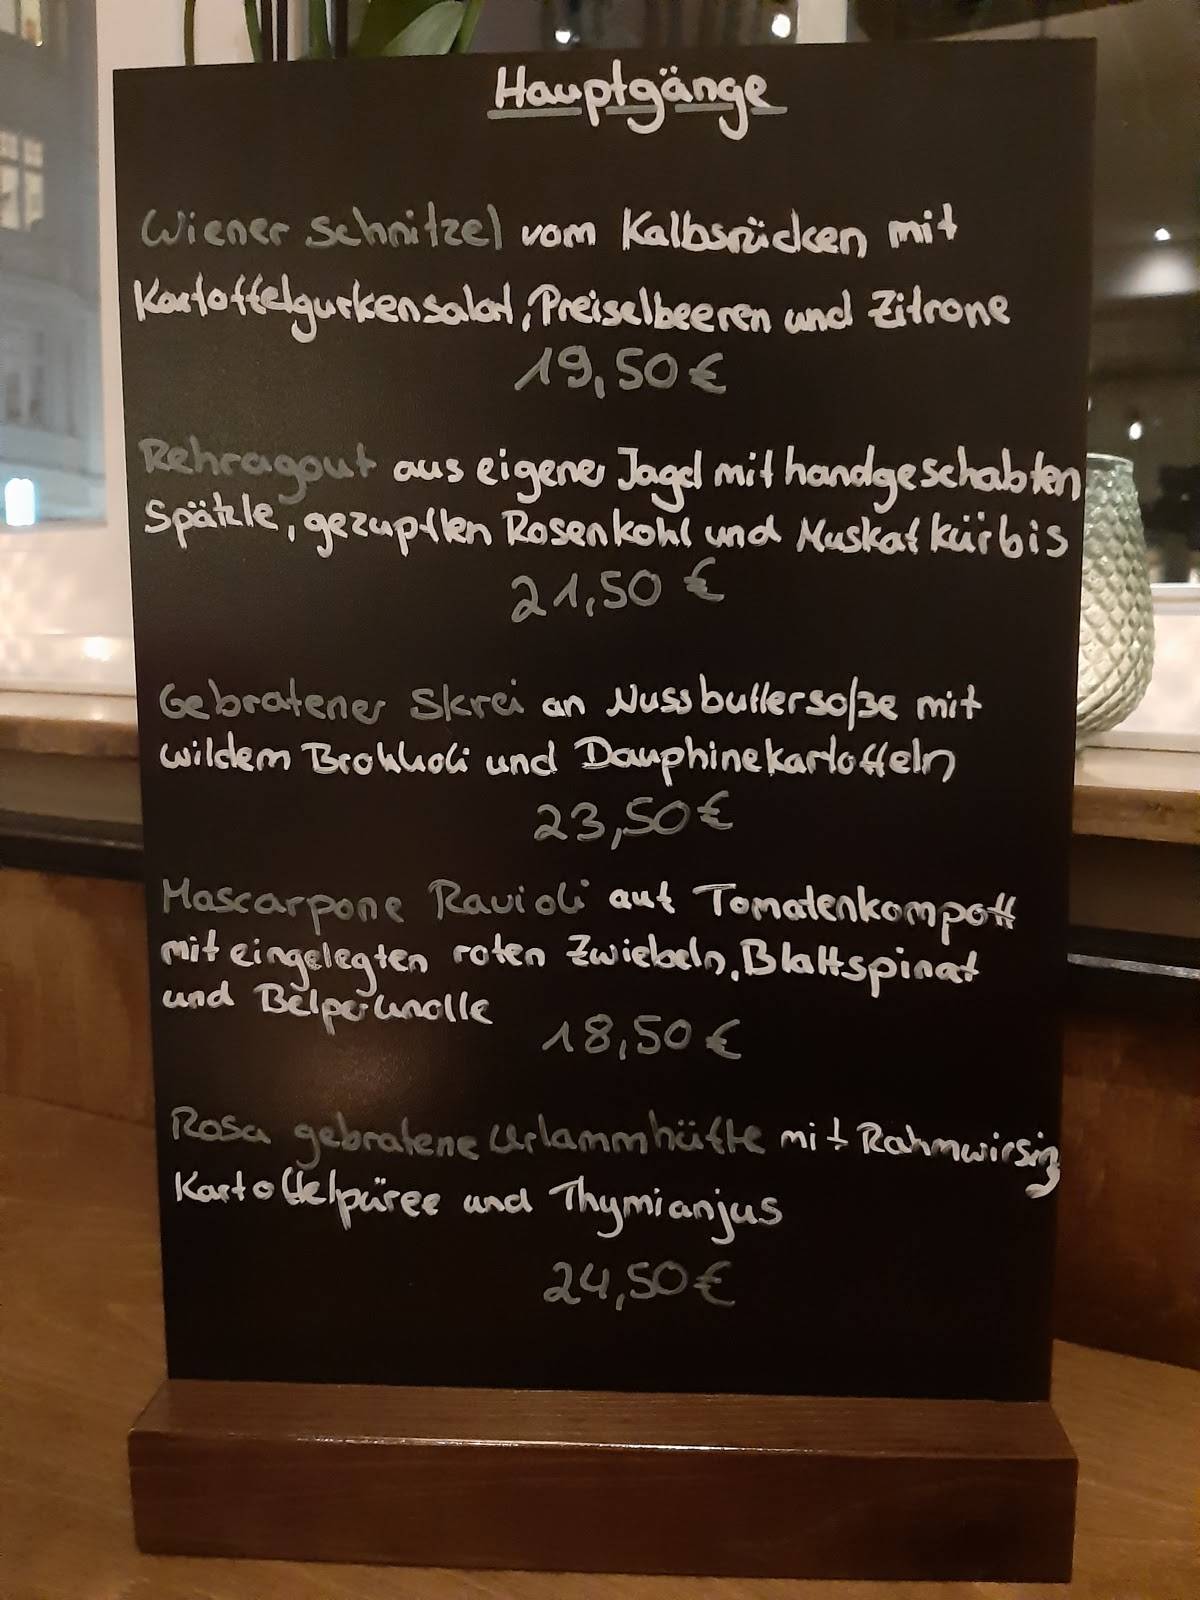 Hauptgänge
Wiener Schnitzel vom Kalbsrücken mit
Kartoffelgurkensalat, Preiselbeeren und Zitrone
19,50 €
Rehragout aus eigener Jagd mit handgeschabten
Spätzle, gezupften Rosenkohl und Muskatkürbis
21,50 €
Gebratener Skrei an Nussbuttersoße mit
wildem Brokkoli und Dauphinekartoffeln
23,50 €
Mascarpone Ravioli auf Tomatenkompott
mit eingelegten roten Zwiebeln, Blattspinat
und Belperknolle
18,50 €
Rosa gebratene Urlammhüfte mit Rahmwirsing
Kartoffelpüree und Thymianjus
24,50 €